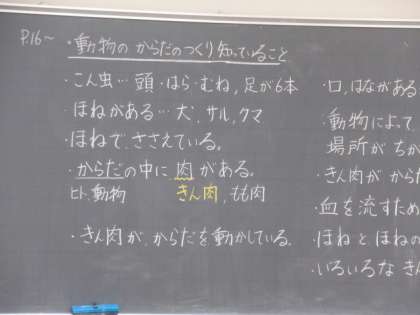 P.16~
・動物の からだのつくり知っていること
・こん虫…頭・はら・むね,足が6本
・ほねがある…犬,サル,クマ
・ほねで,ささえている。
・からだの中に 肉 がある。
ヒト,動物 きん肉,もも肉
・きん肉が,からだを動かしている。
・口,はながある
・動物によって
場所が ちが
・きん肉が からだ
・血を流すため
・ほねとほねの
・いろいろな き